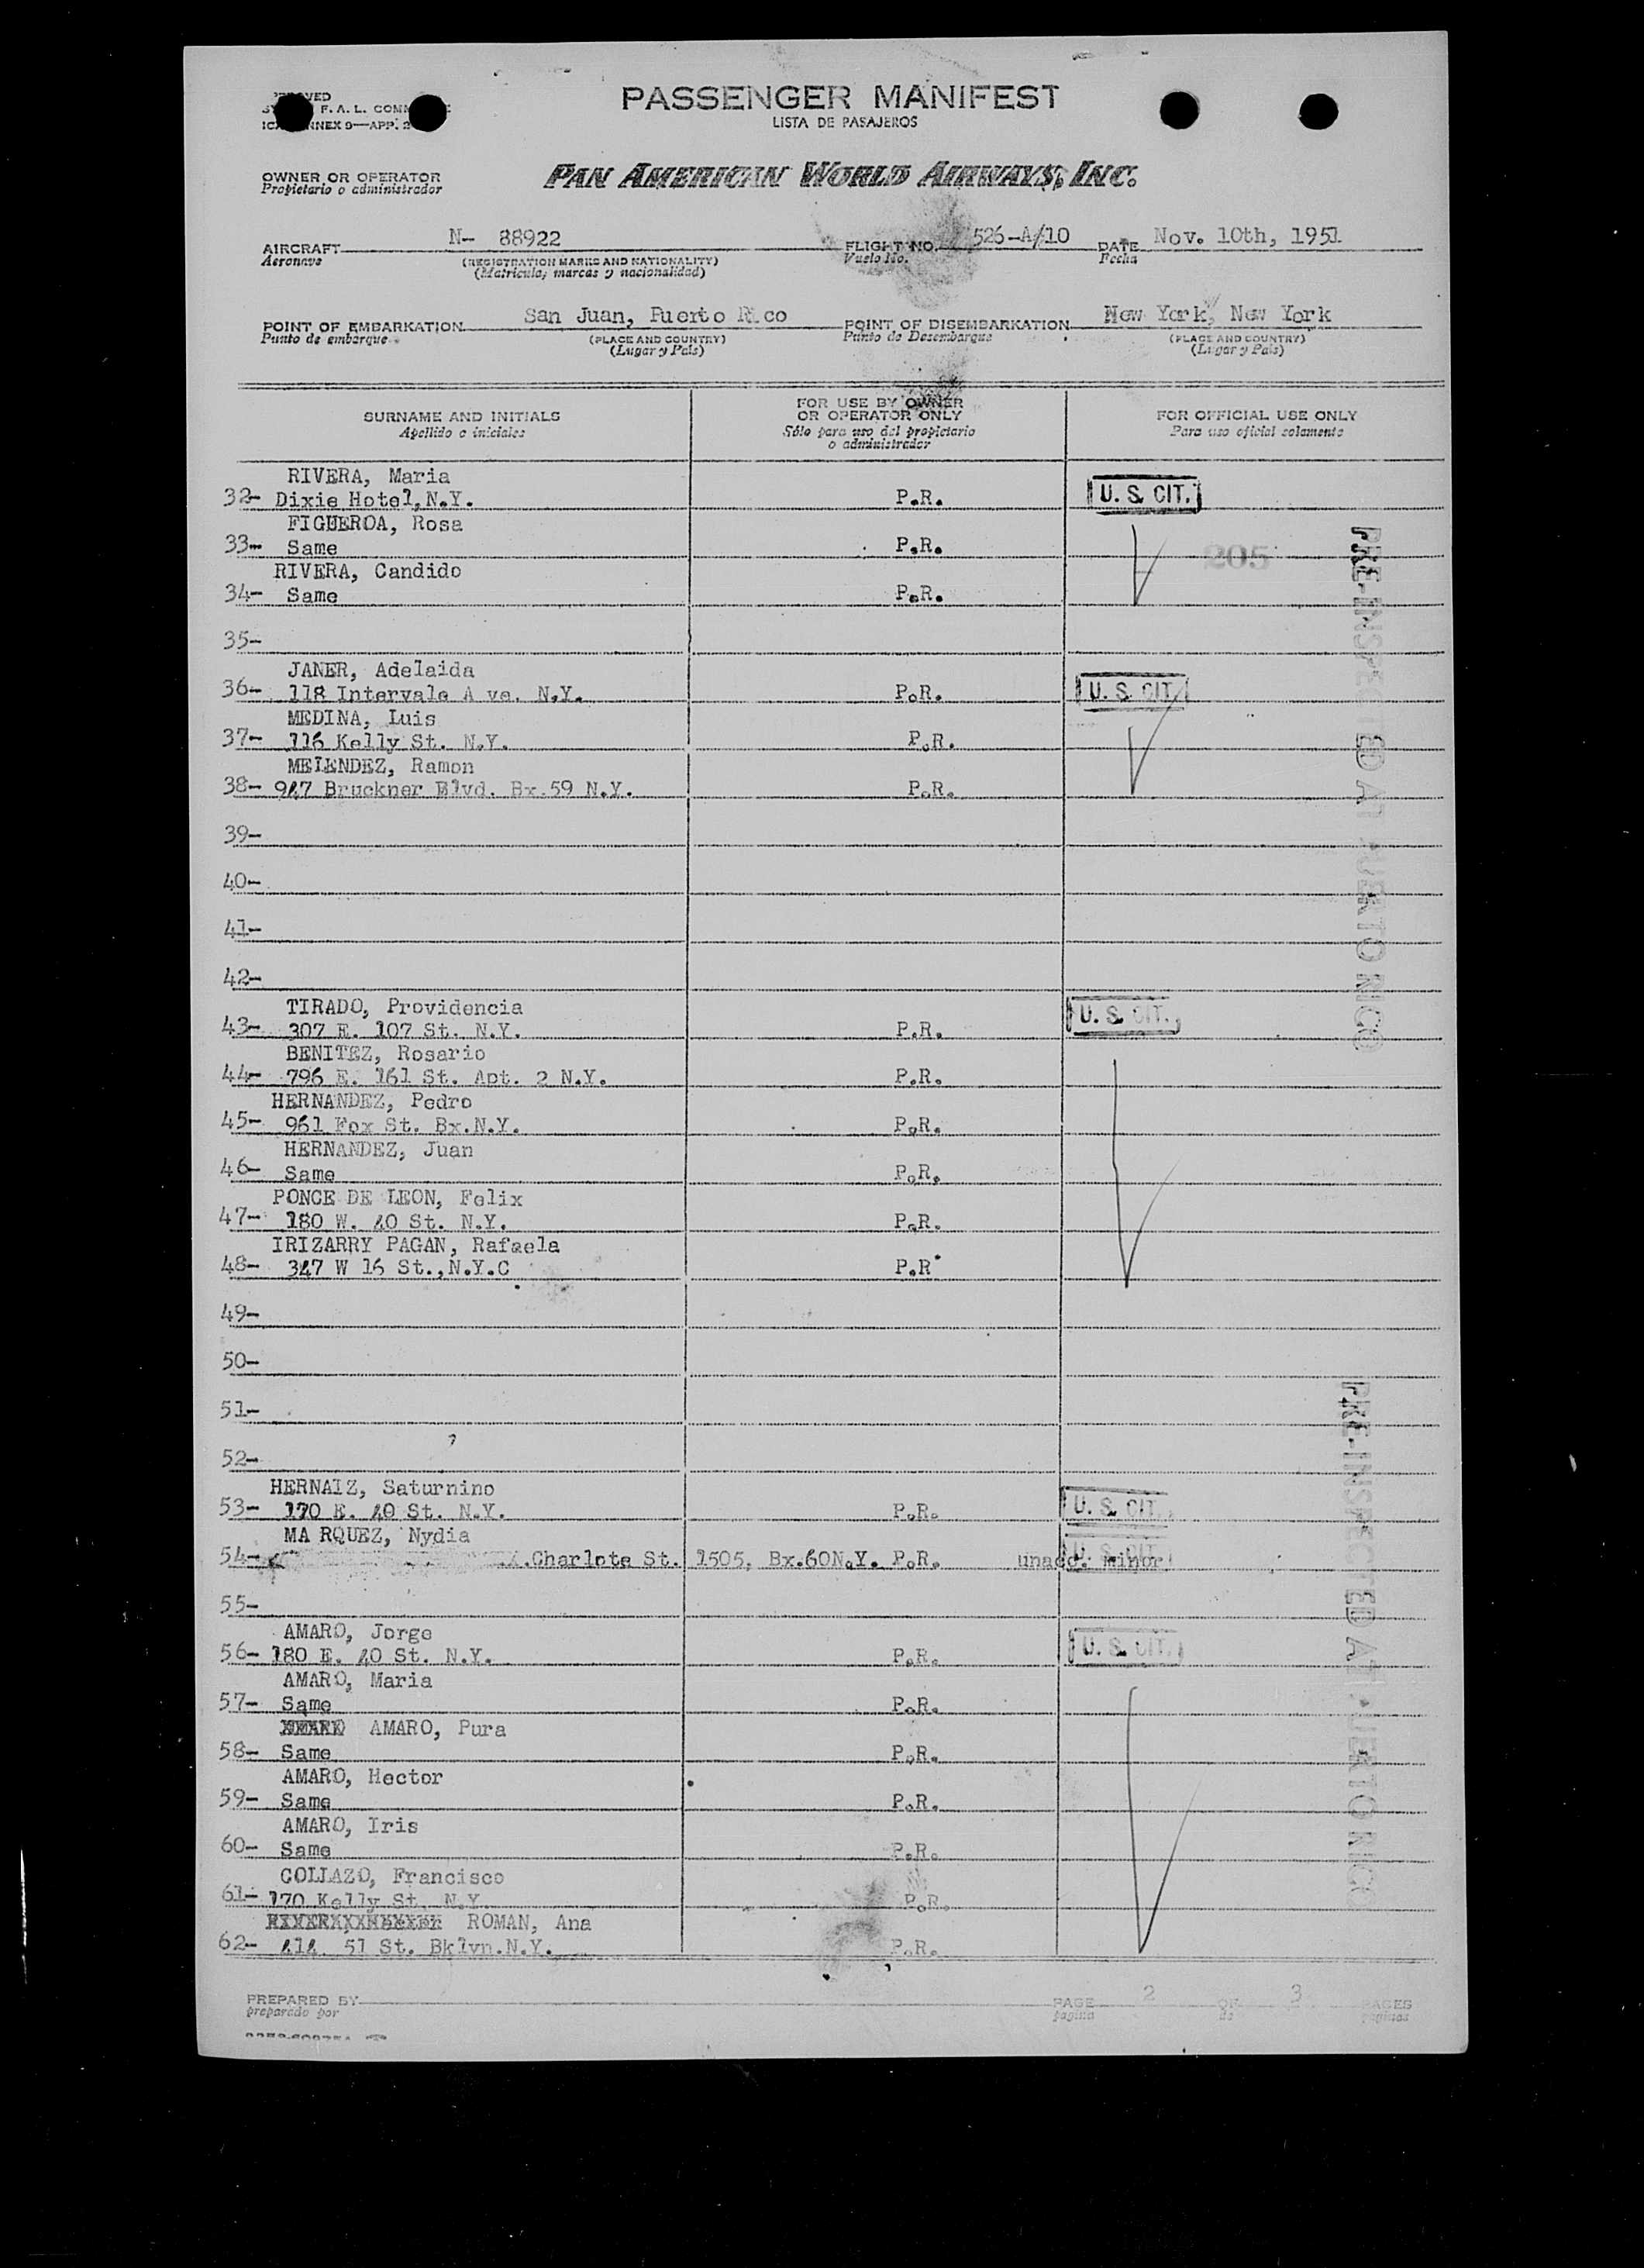 F. A. L.
ANNEX 9—APP. 2
PASSENGER MANIFEST
LISTA DE PASAJEROS
OWNER OR OPERATOR
Propietario o administrador
PAN AMERICAN WORLD AIRWAYS, INC.
AIRCRAFT N- 88922 FLIGHT NO. 526-A/10 DATE Nov. 10th, 1951
Aeronave (REGISTRATION MARKS AND NATIONALITY) Vuelo No. Fecha
(Matricula, marcas y nacionalidad)
POINT OF EMBARKATION San Juan, Puerto Rico POINT OF DISEMBARKATION New York, New York
Punto de embarque (PLACE AND COUNTRY) Punto de Desembarque (PLACE AND COUNTRY)
(Lugar y País) (Lugar y País)
SURNAME AND INITIALS
Apellido e iniciales
FOR USE BY OWNER
OR OPERATOR ONLY
Sólo para uso del propietario
o administrador
FOR OFFICIAL USE ONLY
Para uso oficial solamente
RIVERA, Maria
32- Dixie Hotel, N.Y. P.R. U. S. CIT.
FIGUEROA, Rosa
33- Same P.R. 205
RIVERA, Candido
34- Same P.R.
35-
JANER, Adelaida
36- 118 Intervale A ve. N.Y. P.R. U. S. CIT.
MEDINA, Luis
37- 116 Kelly St. N.Y. P.R.
MELENDEZ, Ramon
38- 947 Bruckner Blvd. Bx.59 N.Y. P.R.
39-
40-
41-
42-
TIRADO, Providencia
43- 307 E. 107 St. N.Y. P.R. U. S. CIT.
BENITEZ, Rosario
44- 796 E. 161 St. Apt. 2 N.Y. P.R.
HERNANDEZ, Pedro
45- 961 Fox St. Bx.N.Y. P.R.
HERNANDEZ, Juan
46- Same P.R.
PONCE DE LEON, Felix
47- 180 W. 40 St. N.Y. P.R.
IRIZARRY PAGAN, Rafaela
48- 347 W 16 St.,N.Y.C P.R.
49-
50-
51-
52-
HERNAIZ, Saturnino
53- 170 E. 40 St. N.Y. P.R. U. S. CIT.
MA RQUEZ, Nydia
54- Charlote St. 1505, Bx.60N.Y. P.R. unacc. minor U. S. CIT.
55-
AMARO, Jorge
56- 180 E. 40 St. N.Y. P.R. U. S. CIT.
AMARO, Maria
57- Same P.R.
AMARO, Pura
58- Same P.R.
AMARO, Hector
59- Same P.R.
AMARO, Iris
60- Same P.R.
COLLAZO, Francisco
61- 170 Kelly St. N.Y. P.R.
ROMAN, Ana
62- 414 51 St. Bklyn.N.Y. P.R.
PRE-INSPECTED AT PUERTO RICO
PRE-INSPECTED AT PUERTO RICO
PREPARED BY PAGE 2 OF 3 PAGES
preparado por pagina de paginas